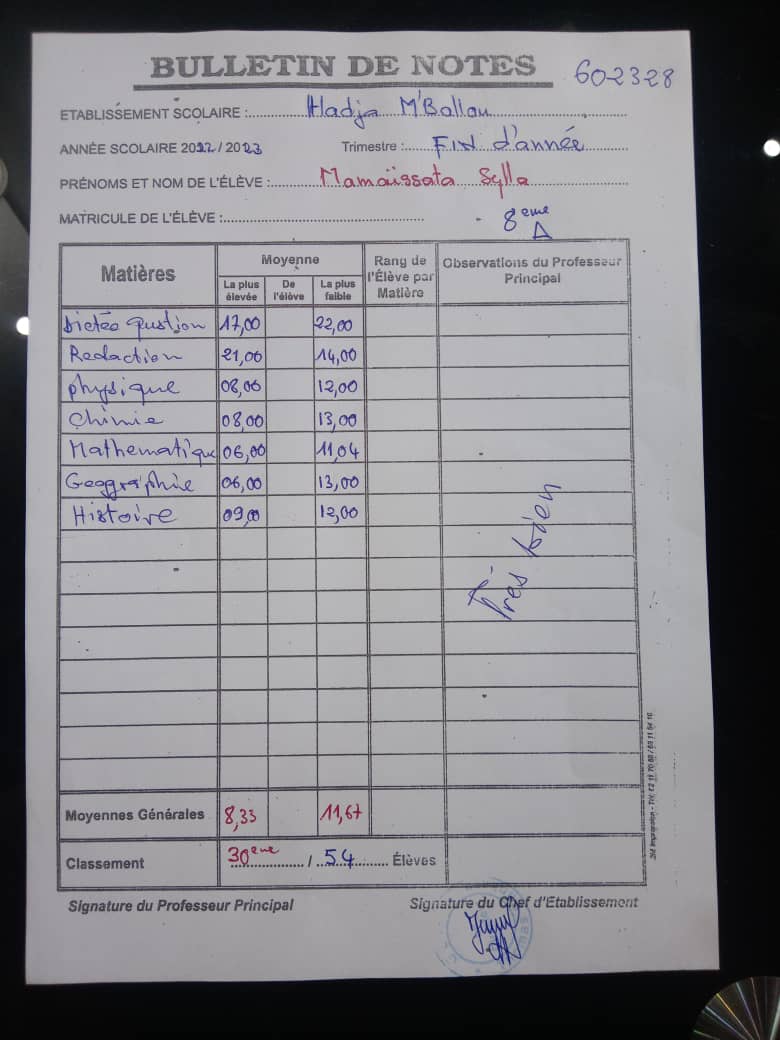 BULLETIN DE NOTES 602328
ETABLISSEMENT SCOLAIRE : Hadja M'Ballou
ANNÉE SCOLAIRE 2022 / 2023 Trimestre : FIN d'année
PRÉNOMS ET NOM DE L'ÉLÈVE : Mamaïssata Sylla
MATRICULE DE L'ÉLÈVE : 8eme
A
Matières Moyenne Rang de l'Élève par Matière Observations du Professeur Principal
La plus élevée De l'élève La plus faible
Dictée qustion 17,00 22,00
Redaction 21,00 14,00
physique 08,00 12,00
Chimie 08,00 13,00
Mathematique 06,00 11,04
Geographie 06,00 13,00
Histoire 09,00 12,00
Très bien
Moyennes Générales 8,33 11,67
Classement 30eme / 54 Élèves
Signature du Professeur Principal Signature du Chef d'Etablissement